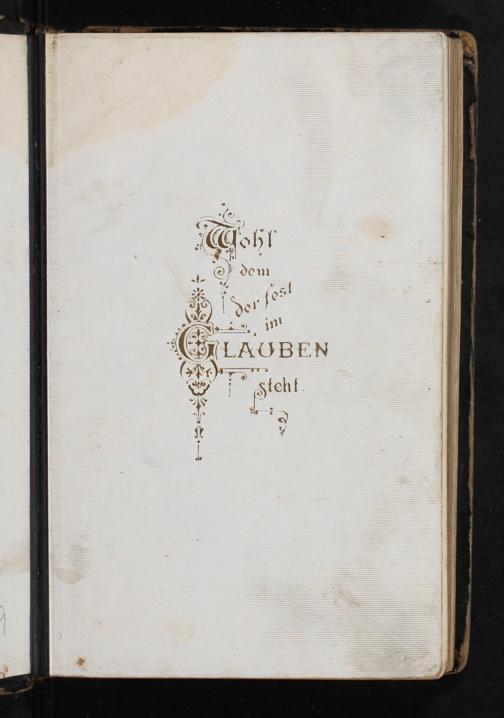 Wohl
dem
der fest
im
GLAUBEN
steht.